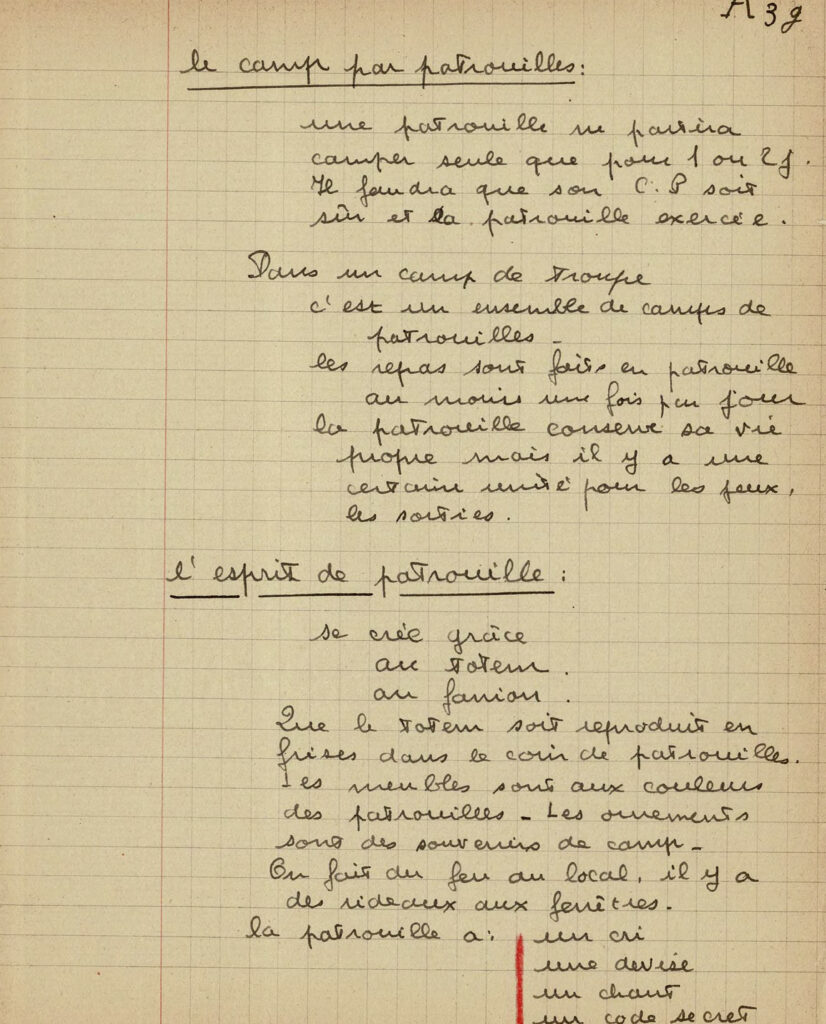 A 3 g
le camp par patrouilles:
une patrouille ne partira
camper seule que pour 1 ou 2 j.
Il faudra que son C.P soit
sûr et la patrouille exercée.
Dans un camp de troupe
c'est un ensemble de camps de
patrouilles -
les repas sont faits en patrouille
au moins une fois par jour
la patrouille conserve sa vie
propre mais il y a une
certaine unité pour les jeux,
les sorties.
l'esprit de patrouille:
se crée grâce
au totem.
au fanion.
Que le totem soit reproduit en
frises dans le coin de patrouilles.
Les meubles sont aux couleurs
des patrouilles - Les ornements
sont des souvenirs de camp -
On fait du feu au local, il y a
des rideaux aux fenêtres.
la patrouille a: un cri
une devise
un chant
un code secret